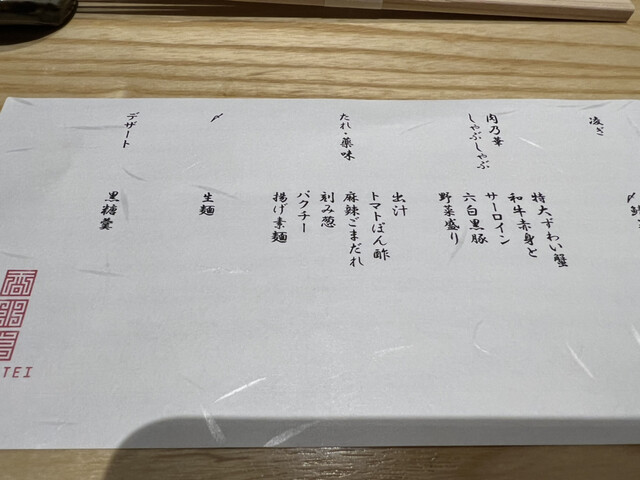 凌ぎ
肉乃華
しゃぶしゃぶ
特大ずわい蟹
和牛赤身と
サーロイン
六白黒豚
野菜盛り
たれ・薬味
出汁
トマトぽん酢
麻辣ごまだれ
刻み葱
パクチー
揚げ素麺
〆
生麺
デザート
黒糖羹
TEI